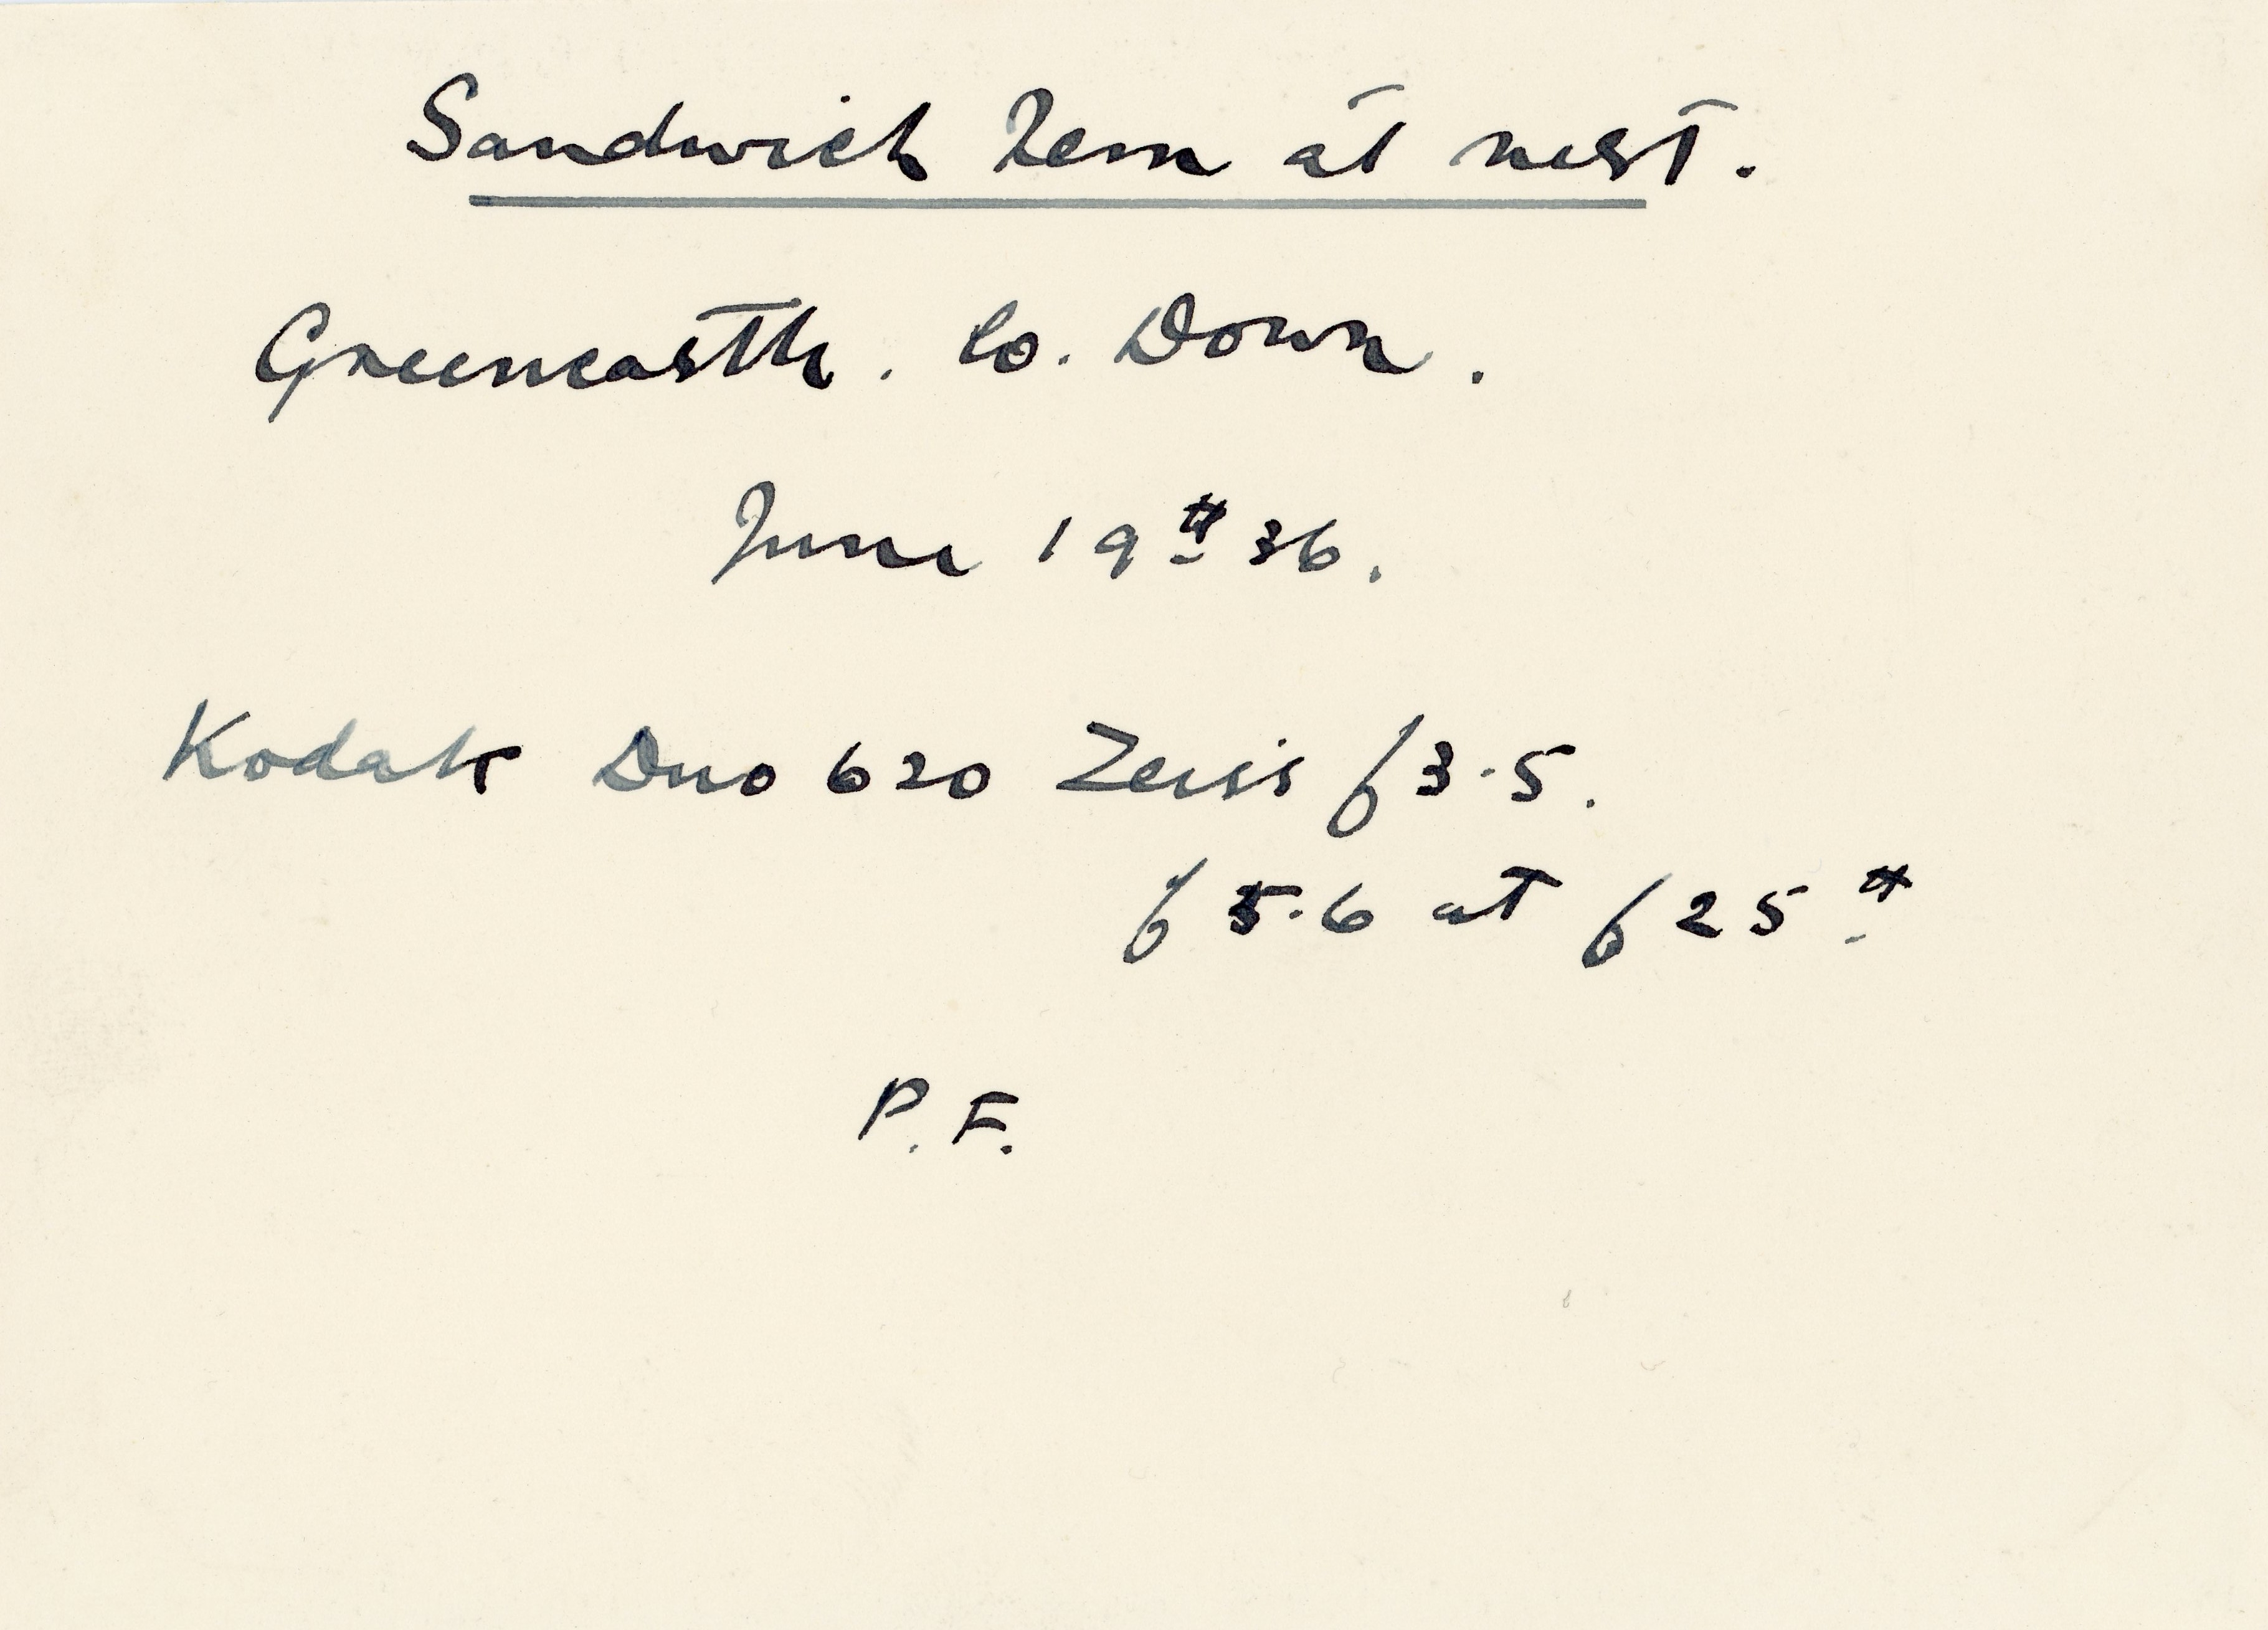 Sandwich Tern at nest.
Greencastle. Co. Down.
June 19th 36.
Kodak Duo 620 Zeiss f3.5.
f5.6 at f25th
P.F.